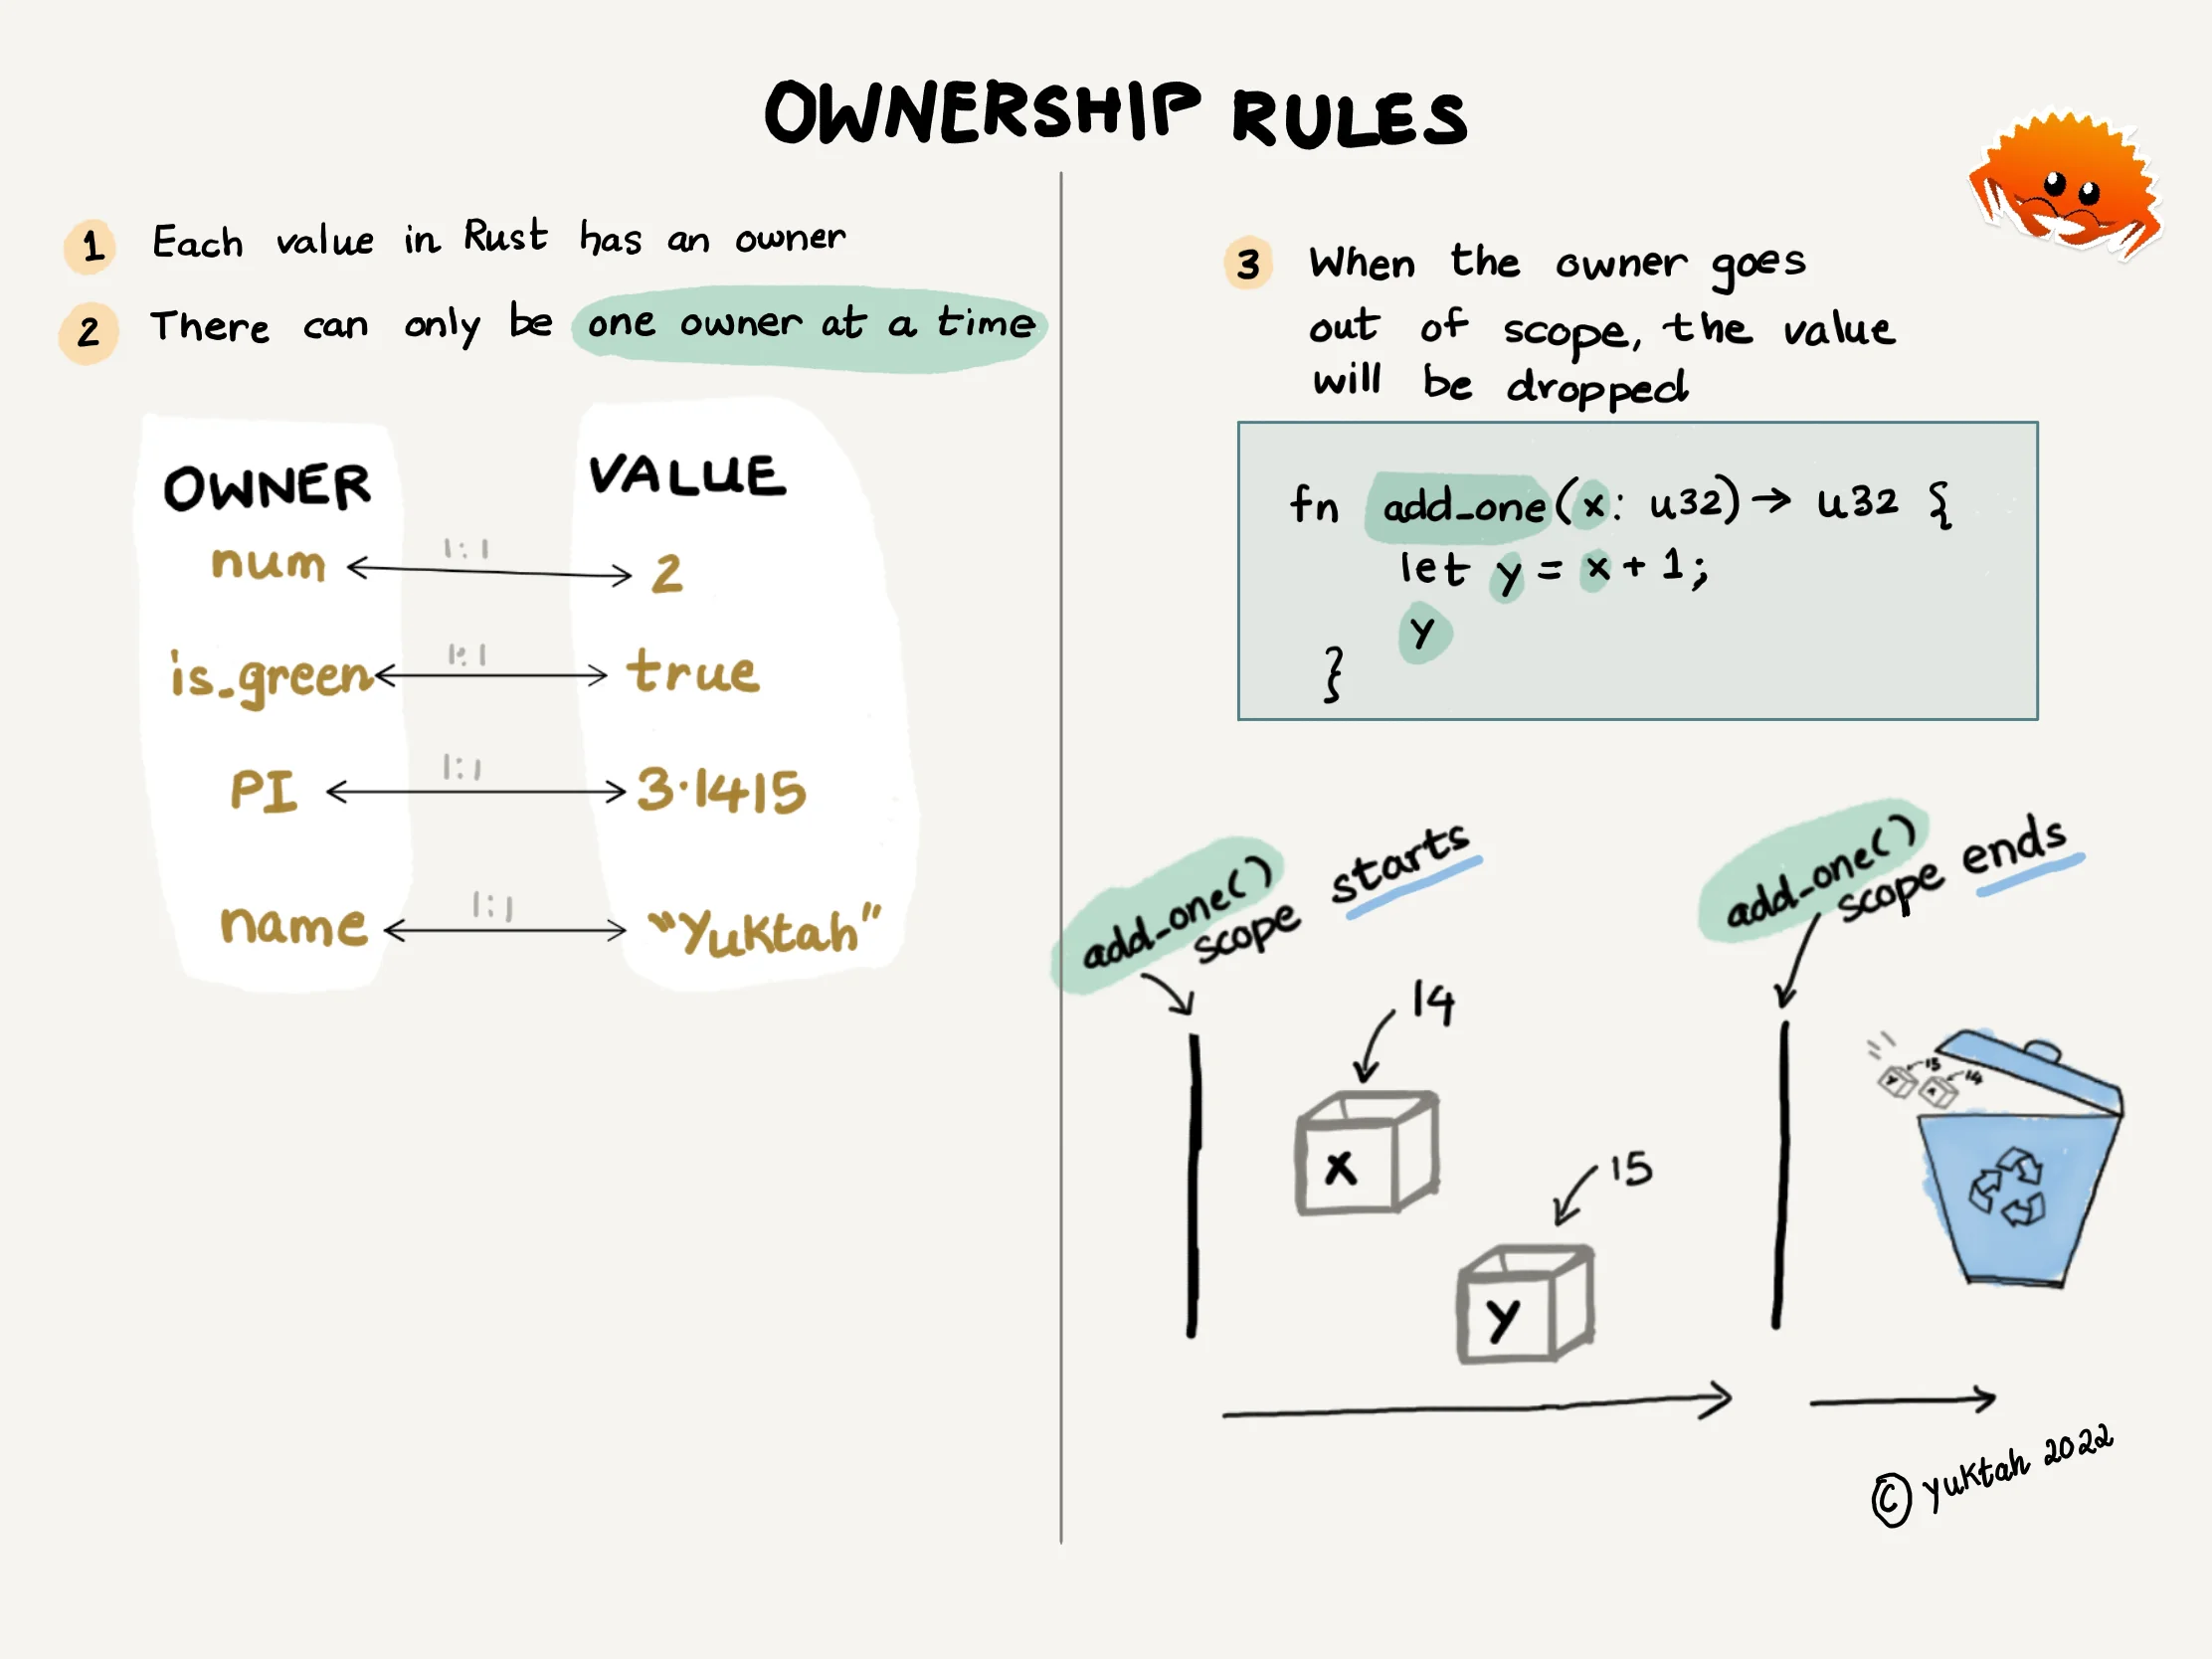 OWNERSHIP RULES
1 Each value in Rust has an owner
2 There can only be one owner at a time
OWNER VALUE
num 1:1 2
is_green 1:1 true
PI 1:1 3.1415
name 1:1 "Yuktah"
3 When the owner goes
out of scope, the value
will be dropped
fn add_one(x: u32) → u32 {
let y = x + 1;
y
}
add_one()
scope starts
14
x
15
y
add_one()
scope ends
y 15
x 14
© yuktah 2022